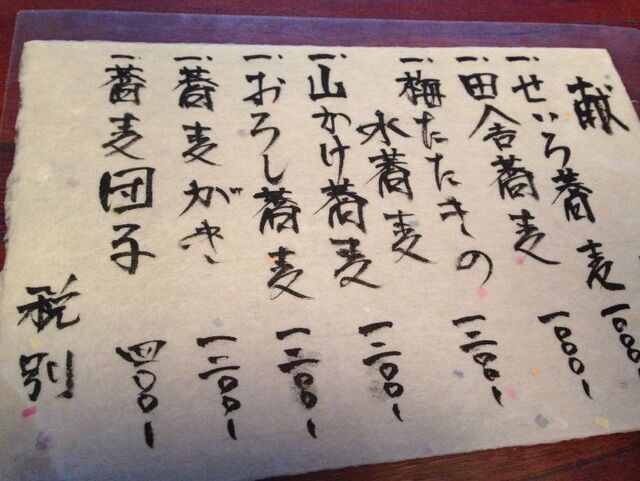 献
一、せいろ蕎麦 一〇〇〇ー
一、田舎蕎麦 一〇〇〇ー
一、梅たたきの
水蕎麦 一二〇〇ー
一、山かけ蕎麦 一二〇〇ー
一、おろし蕎麦 一二〇〇ー
一、蕎麦がき 一二〇〇ー
一、蕎麦団子 四〇〇ー
税別